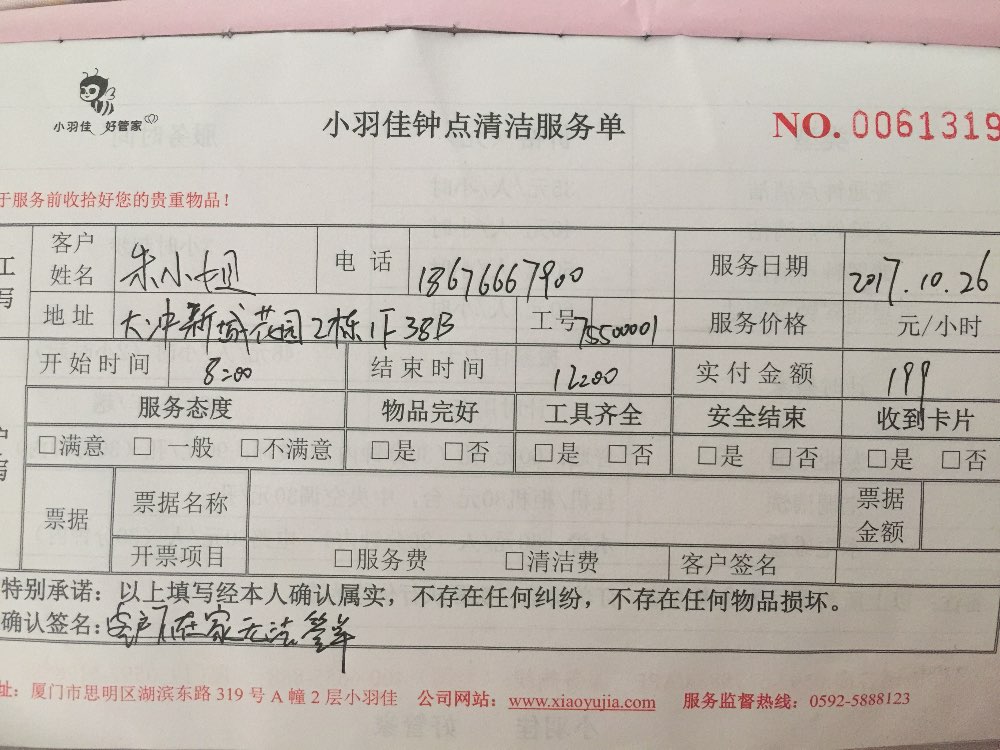 小羽佳 好管家
小羽佳钟点清洁服务单
NO. 0061319
于服务前收拾好您的贵重物品！
工 客户姓名 朱小姐 电话 18676667900 服务日期 2017.10.26
写 地址 大冲新城花园2栋1F38B 工号 75500001 服务价格 元/小时
开始时间 8:00 结束时间 12:00 实付金额 199
服务态度 物品完好 工具齐全 安全结束 收到卡片
户 □满意 □一般 □不满意 □是 □否 □是 □否 □是 □否 □是 □否
写 票据 票据名称 票据金额
开票项目 □服务费 □清洁费 客户签名
特别承诺：以上填写经本人确认属实，不存在任何纠纷，不存在任何物品损坏。
确认签名：客户不在家无法签单
址：厦门市思明区湖滨东路 319 号 A 幢 2 层小羽佳 公司网站：www.xiaoyujia.com 服务监督热线：0592-5888123